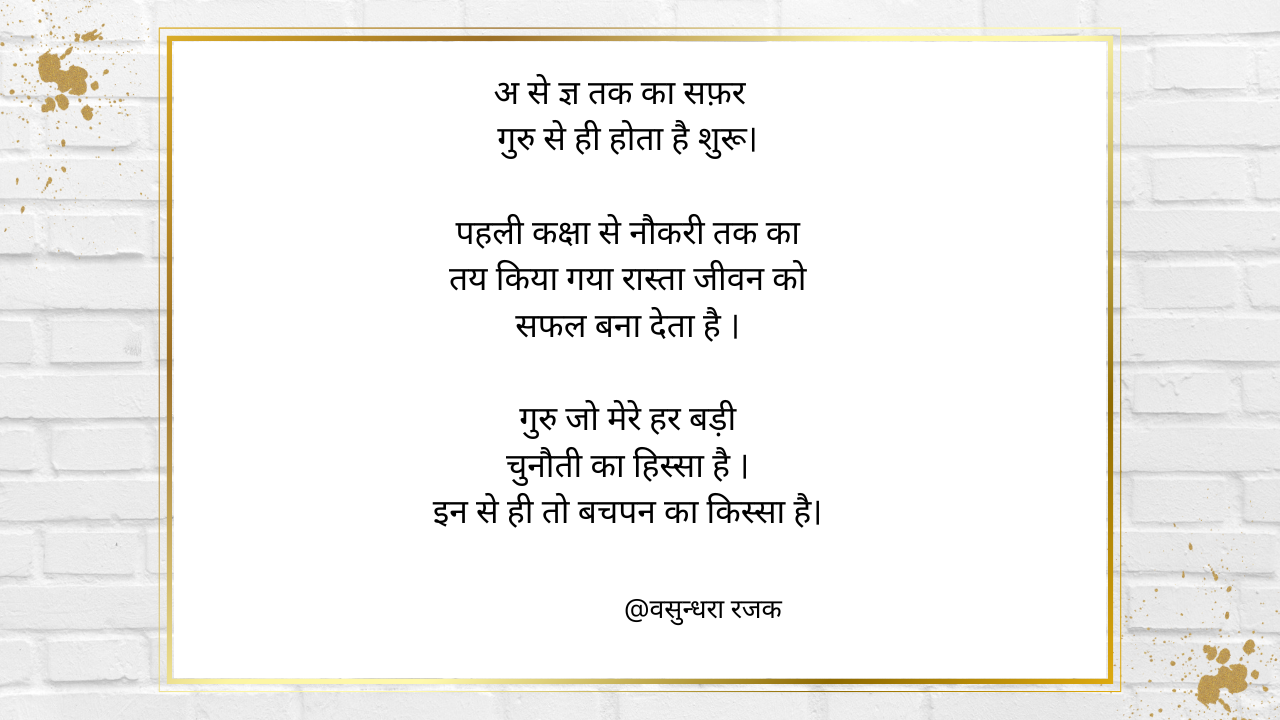 अ से ज्ञ तक का सफ़र
गुरु से ही होता है शुरू।
पहली कक्षा से नौकरी तक का
तय किया गया रास्ता जीवन को
सफल बना देता है ।
गुरु जो मेरे हर बड़ी
चुनौती का हिस्सा है ।
इन से ही तो बचपन का किस्सा है।
@वसुन्धरा रजक